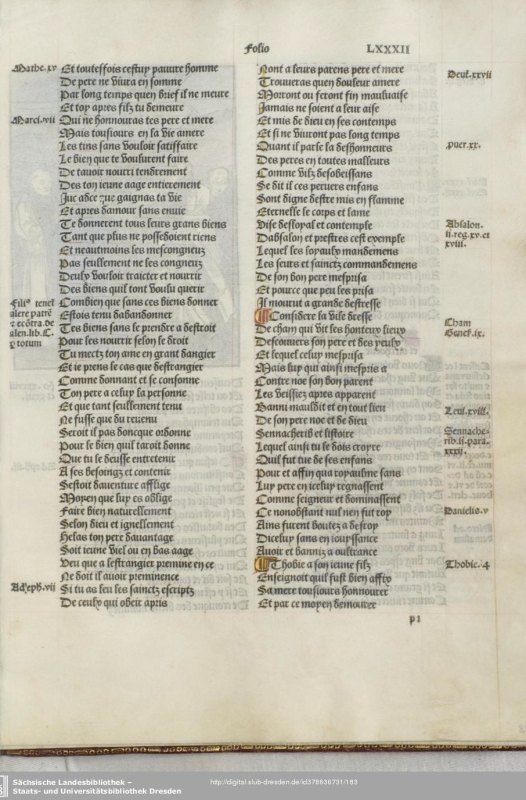 Folio LXXXII
Mathe.xv
Et touteffois cestuy pauure homme
De pere ne viura en somme
Par long temps quen brief il ne meure
Et toy apres filz tu demeure
Marci.vii
Qui ne honnouras tes pere et mere
Mais tousiours en la vie amere
Les tins sans vouloir satiffaire
Le bien que te voulurent faire
De tauoir nourri tendrement
Des ton ieune aage entierement
Juc adce que gaignas ta vie
Et apres damour sans enuie
Te donnerent tous leurs grans biens
Tant que plus ne possedoient riens
Et neautmoins les mescongneuz
Pas seullement ne les congneuz
Deulx vouloir traicter et nourrir
Des biens quil tont voulu querir
Filius tenet
alere patrē
Combien que sans ces biens donner
Estois tenu dabandonner
Tes biens sans le prendre a destroit
Pour les nourrir selon le droit
p totum
Tu metz ton ame en grant dangier
Et ie prens le cas que destrangier
Comme donnant et se consonne
Ton pere a celuy sa personne
Et que tant seullement tenu
Ne fusse que du reuenu
Seroit il pas doncque ordonne
Pour le bien quil taroit donne
Que tu le deusse entretenir
A ses besoingz et contenir
Sestoit dauenture afflige
Moyen que luy es oblige
Faire bien naturellement
Selon dieu et ignellement
Helas ton pere dauantage
Soit ieune viel ou en bas aage
Veu que a lestrangier premine en ce
Ne doit il auoir preminence
Ad eph.vii
Si tu as leu les sainctz escriptz
De ceulx qui obeir apris
Nont a leurs parens pere et mere
Trouueras quen douleur amere
Deut.xxvii
Morront ou feront fin mauluaise
Jamais ne soient a leur aise
Et mis de dieu en ses contemps
Et si ne viuront pas long temps
Quant il parle la deshonneurs
puer.xx.
Des peres en toutes malleurs
Comme vilz desobeissans
Se dit il ces peruers enfans
Sont digne destre mis en flamme
Eternelle le corps et lame
Vise desloyal et contemple
Absalon.
ii.reg.xv.et
xviii.
Dabsalon et prestres cest exemple
Lequel les loyaulx mandemens
Les seurs et sainctz commandemens
De son bon pere mesprisa
Et pource que peu les prisa
Il mourut a grande destresse
Considere la vile dresse
De cham qui vit les honteux lieux
Cham
Genes.ix.
Descouuers son pere et des yeulx
Et lequel celuy mesprisa
Mais luy qui ainsi mespris a
Contre noe son bon parent
Les veissiez apres apparent
Banni mauldit et en tout lieu
Leui.xviii.
De son pere noe et de dieu
Sennacherib et listoire
Sennache-
rib.ii.para.
xxxii.
Lequel ainsi tu le dois croyre
Quil fut tue de ses enfans
Pour et affin qua royaulme sans
Luy pere en icelluy regnassent
Comme seigneur et dominassent
Ce nonobstant nul nen fut roy
Danielis.v
Ains furent boutez a desroy
Dicelluy sans en iouyssance
Auoir et banniz a oultrance
Thobie a son ieune filz
Thobie.4
Enseignoit quil fust bien affix
Sa mere tousiours honnourer
Et par ce moyen demourer
p i
Sächsische Landesbibliothek –
Staats- und Universitätsbibliothek Dresden
http://digital.slub-dresden.de/id378636731/183